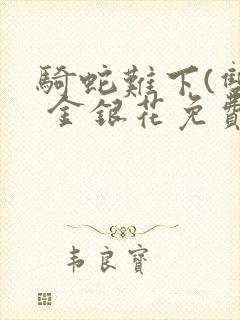 騎蛇難下(雙
金銀花免費
韦良寶